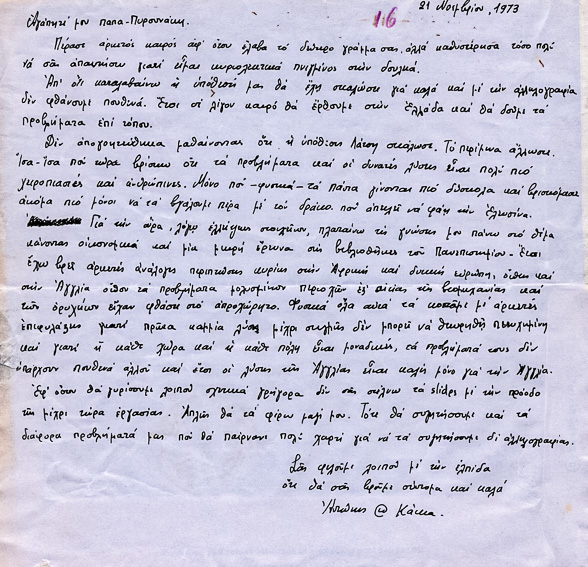 21 Νοεμβρίου, 1973
16
Ἀγαπητέ μου Παπα-Πυρουνάκη,
Πέρασε ἀρκετός καιρός ἀφ' ὅτου ἔλαβα τό δεύτερο γράμμα σας, ἀλλά καθυστέρησα τόσο πολύ
νά σᾶς ἀπαντήσω γιατί εἶμαι κυριολεκτικά πνιγμένος στήν δουλειά.
Ἀπ' ὅτι καταλαβαίνω ἡ ὑπόθεσή μας θά ἔχει σκαλώσει γιά καλά καί μέ τήν ἀλληλογραφία
δέν φθάνουμε πουθενά. Ἔτσι σέ λίγον καιρό θά ἔρθουμε στήν Ἑλλάδα καί θά δοῦμε τά
προβλήματα ἐπί τόπου.
Δέν ἀπογοητεύθηκα μαθαίνοντας ὅτι ἡ ὑπόθεση Λάτση σκάλωσε. Τό περίμενα ἄλλωστε.
Ἴσα-ἴσα πού τώρα βρίσκω ὅτι τά προβλήματα καί οἱ δυνατές λύσεις εἶναι πολύ πιό
χειροπιαστές καί ἀνθρώπινες. Μόνο πού -φυσικά- τά πάντα γίνονται πιό δύσκολα καί βρισκόμαστε
ἀκόμα πιό μόνοι νά τά βγάλουμε πέρα μέ τόν δράκο πού ἀπειλεῖ νά φάῃ τήν Ἐλευσίνα.
Γιά τήν ὥρα, λόγω ἐλλείψεως στοιχείων, πλαταίνω τίς γνώσεις μου πάνω στό θέμα
κάνοντας οἰκονομικά καί μία μικρή ἔρευνα στίς βιβλιοθῆκες τοῦ Πανεπιστημίου - Ἔτσι
ἔχω βρεῖ ἀρκετές ἀνάλογες περιπτώσεις κυρίως στήν Ἀμερική καί δυτική εὐρώπη, εἰδικά καί
στήν Ἀγγλία ὅπου τά προβλήματα μολυσμένων περιοχῶν ἐξ αἰτίας τῆς βιομηχανίας καί
τῶν ὀρυχείων εἶχαν φθάσει στό ἀπροχώρητο. Φυσικά ὅλα αὐτά τά κοιτᾶμε μέ ἀρκετές
ἐπιφυλάξεις γιατί πρῶτα καμμία λύση μέχρι στιγμῆς δέν μπορεῖ νά θεωρηθῆ πετυχημένη
καί γιατί ἡ κάθε χώρα καί ἡ κάθε πόλη εἶναι μοναδικές, τά προβλήματά τους δέν
ὑπάρχουν πουθενά ἀλλοῦ καί ἔτσι οἱ λύσεις τῆς Ἀγγλίας εἶναι καλές μόνο γιά τήν Ἀγγλία.
Ἐφ' ὅσον θά γυρίσουμε λοιπόν σχετικά γρήγορα δέν σᾶς στέλνω τά slides μέ τήν πρόοδο
τῆς μέχρι τώρα ἐργασίας. Ἁπλῶς θά τά φέρω μαζί μου. Τότε θά συζητήσουμε καί τά
διάφορα προβλήματά μας πού θά παίρνανε πολύ χαρτί γιά νά τά συζητήσουμε δι' ἀλληλογραφίας.
Σᾶς φιλοῦμε λοιπόν μέ τήν ἐλπίδα
ὅτι θά σᾶς βροῦμε σύντομα καί καλά
Ἀντώνης @ Κάκια.